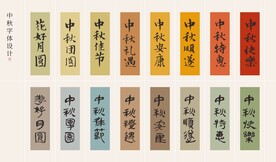 中秋字体设计
花好月圆
中秋团圆
中秋佳节
中秋礼遇
中秋安康
中秋顺遂
中秋特惠
中秋快乐
花好月圆
中秋團圓
中秋佳節
中秋禮遇
中秋安康
中秋順遂
中秋特惠
中秋快樂